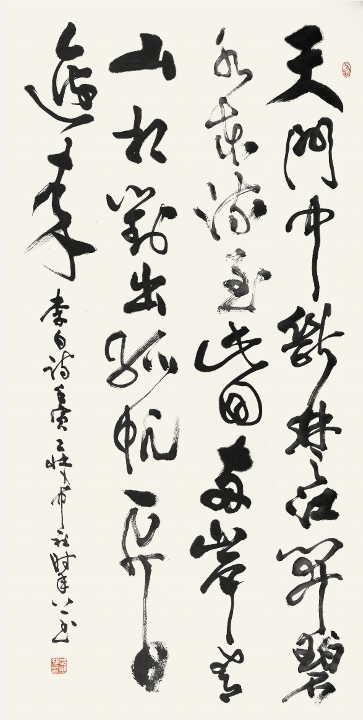 天門中斷楚江開碧
水東流至此回兩岸青
山相對出孤帆一片日
邊來
李白詩